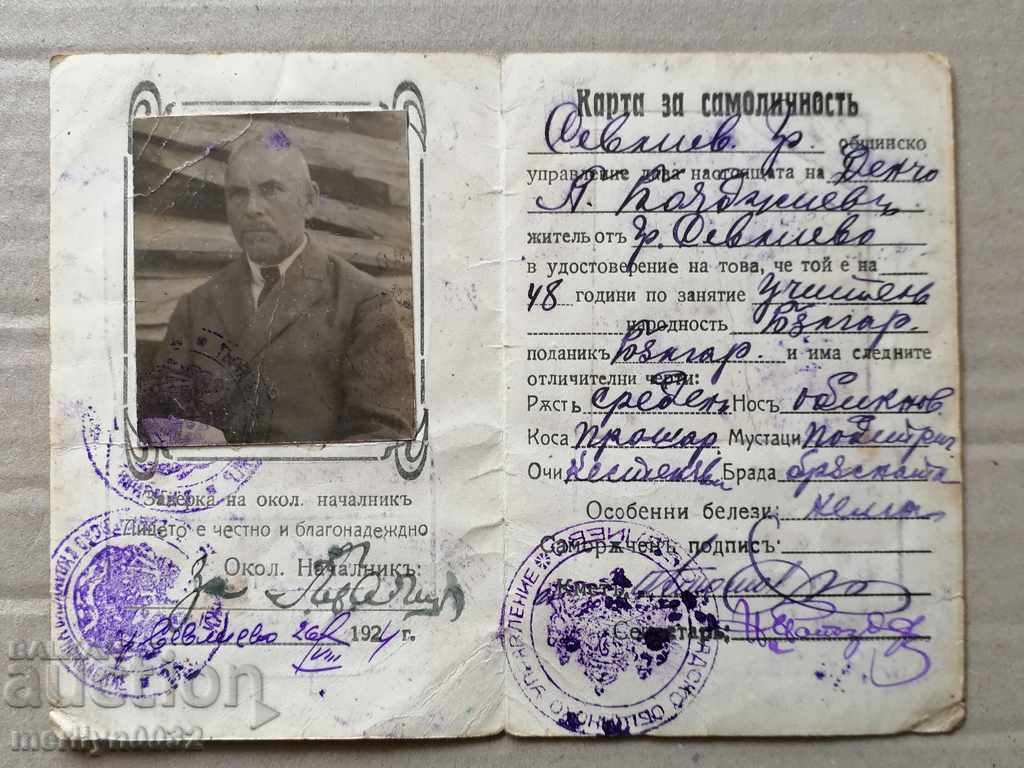 Заверка на окол. началникъ
Лицето е честно и благонадеждно
Окол. Началникъ:
за
гр. Севлиево 26/VIII 1924 г.
Карта за самоличность
Севлиев. гр. общинско
управление дава настоящата на Денчо
жителъ отъ гр. Севлиево
в удостоверение на това, че той е на
48 години по занятие Учитель
народность Бѫлгар.
поданикъ Бѫлгар. и има следните
отличителни черти:
Рѫсть среденъ Носъ обикнов.
Коса прошар. Мустаци подстриг.
Очи кестеняви Брада брѫсната
Особенни белези: нема
Саморѫченъ подпис:
Кметъ:
Секретаръ:
auction
merilyn0032